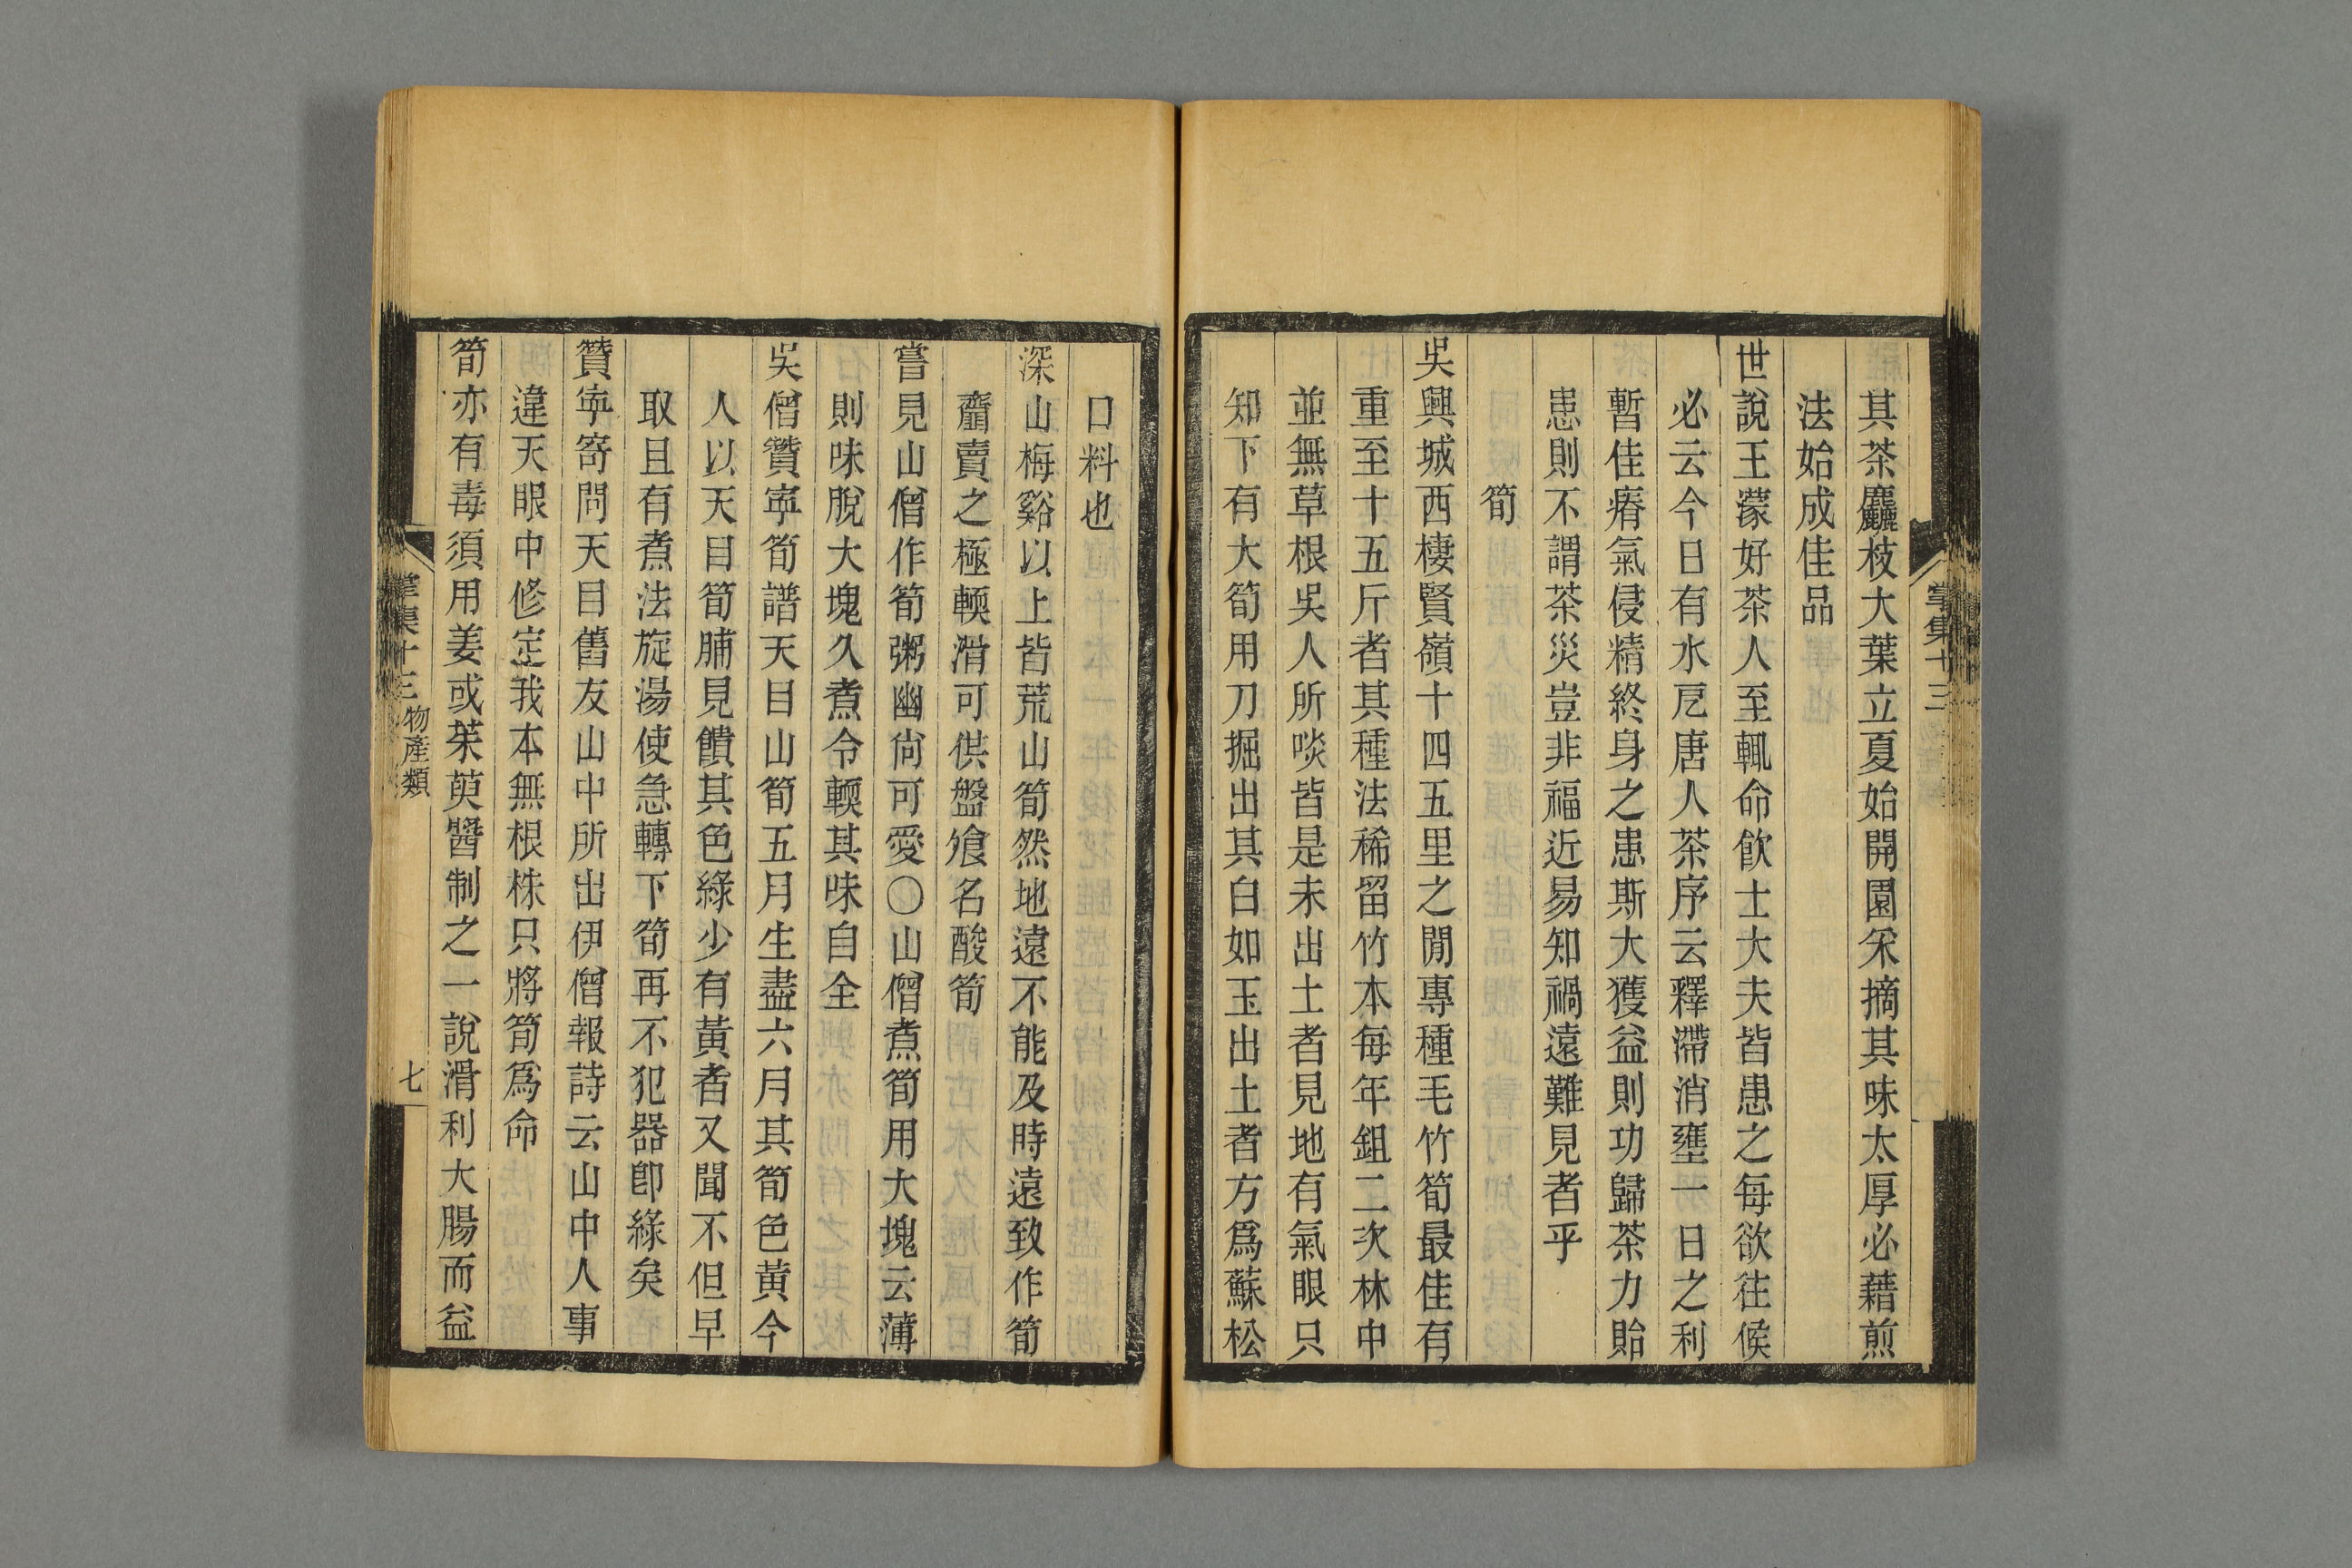 其茶麤枝大葉立夏始開園采摘其味太厚必藉煎
法始成佳品
世說王濛好茶人至輒命飮士大夫皆患之每欲往候
必云今日有水戹唐人茶序云釋滯消壅一日之利
暫佳瘠氣侵精終身之患斯大獲益則功歸茶力貽
患則不謂茶災豈非福近易知禍遠難見者乎
筍
吳興城西棲賢嶺十四五里之閒專種毛竹筍最佳有
重至十五斤者其種法稀留竹本每年鉏二次林中
並無草根吳人所啖皆是未出土者見地有氣眼只
知下有大筍用刀掘出其白如玉出土者方爲蘇松
口料也
深山梅谿以上皆荒山筍然地遠不能及時遠致作筍
虀賣之極輭滑可供盤飧名酸筍
嘗見山僧作筍粥幽尙可愛〇山僧煮筍用大塊云薄
則味脫大塊久煮令輭其味自全
吳僧贊寧筍譜天目山筍五月生盡六月其筍色黃今
人以天目筍脯見饋其色綠少有黃者又聞不但早
取且有煮法旋湯使急轉下筍再不犯器卽綠矣
贊寧寄問天目舊友山中所出伊僧報詩云山中人事
違天眼中修定我本無根株只將筍爲命
筍亦有毒須用姜或茱萸醬制之一說滑利大腸而益
掌集十三
掌集十三 物產類
七